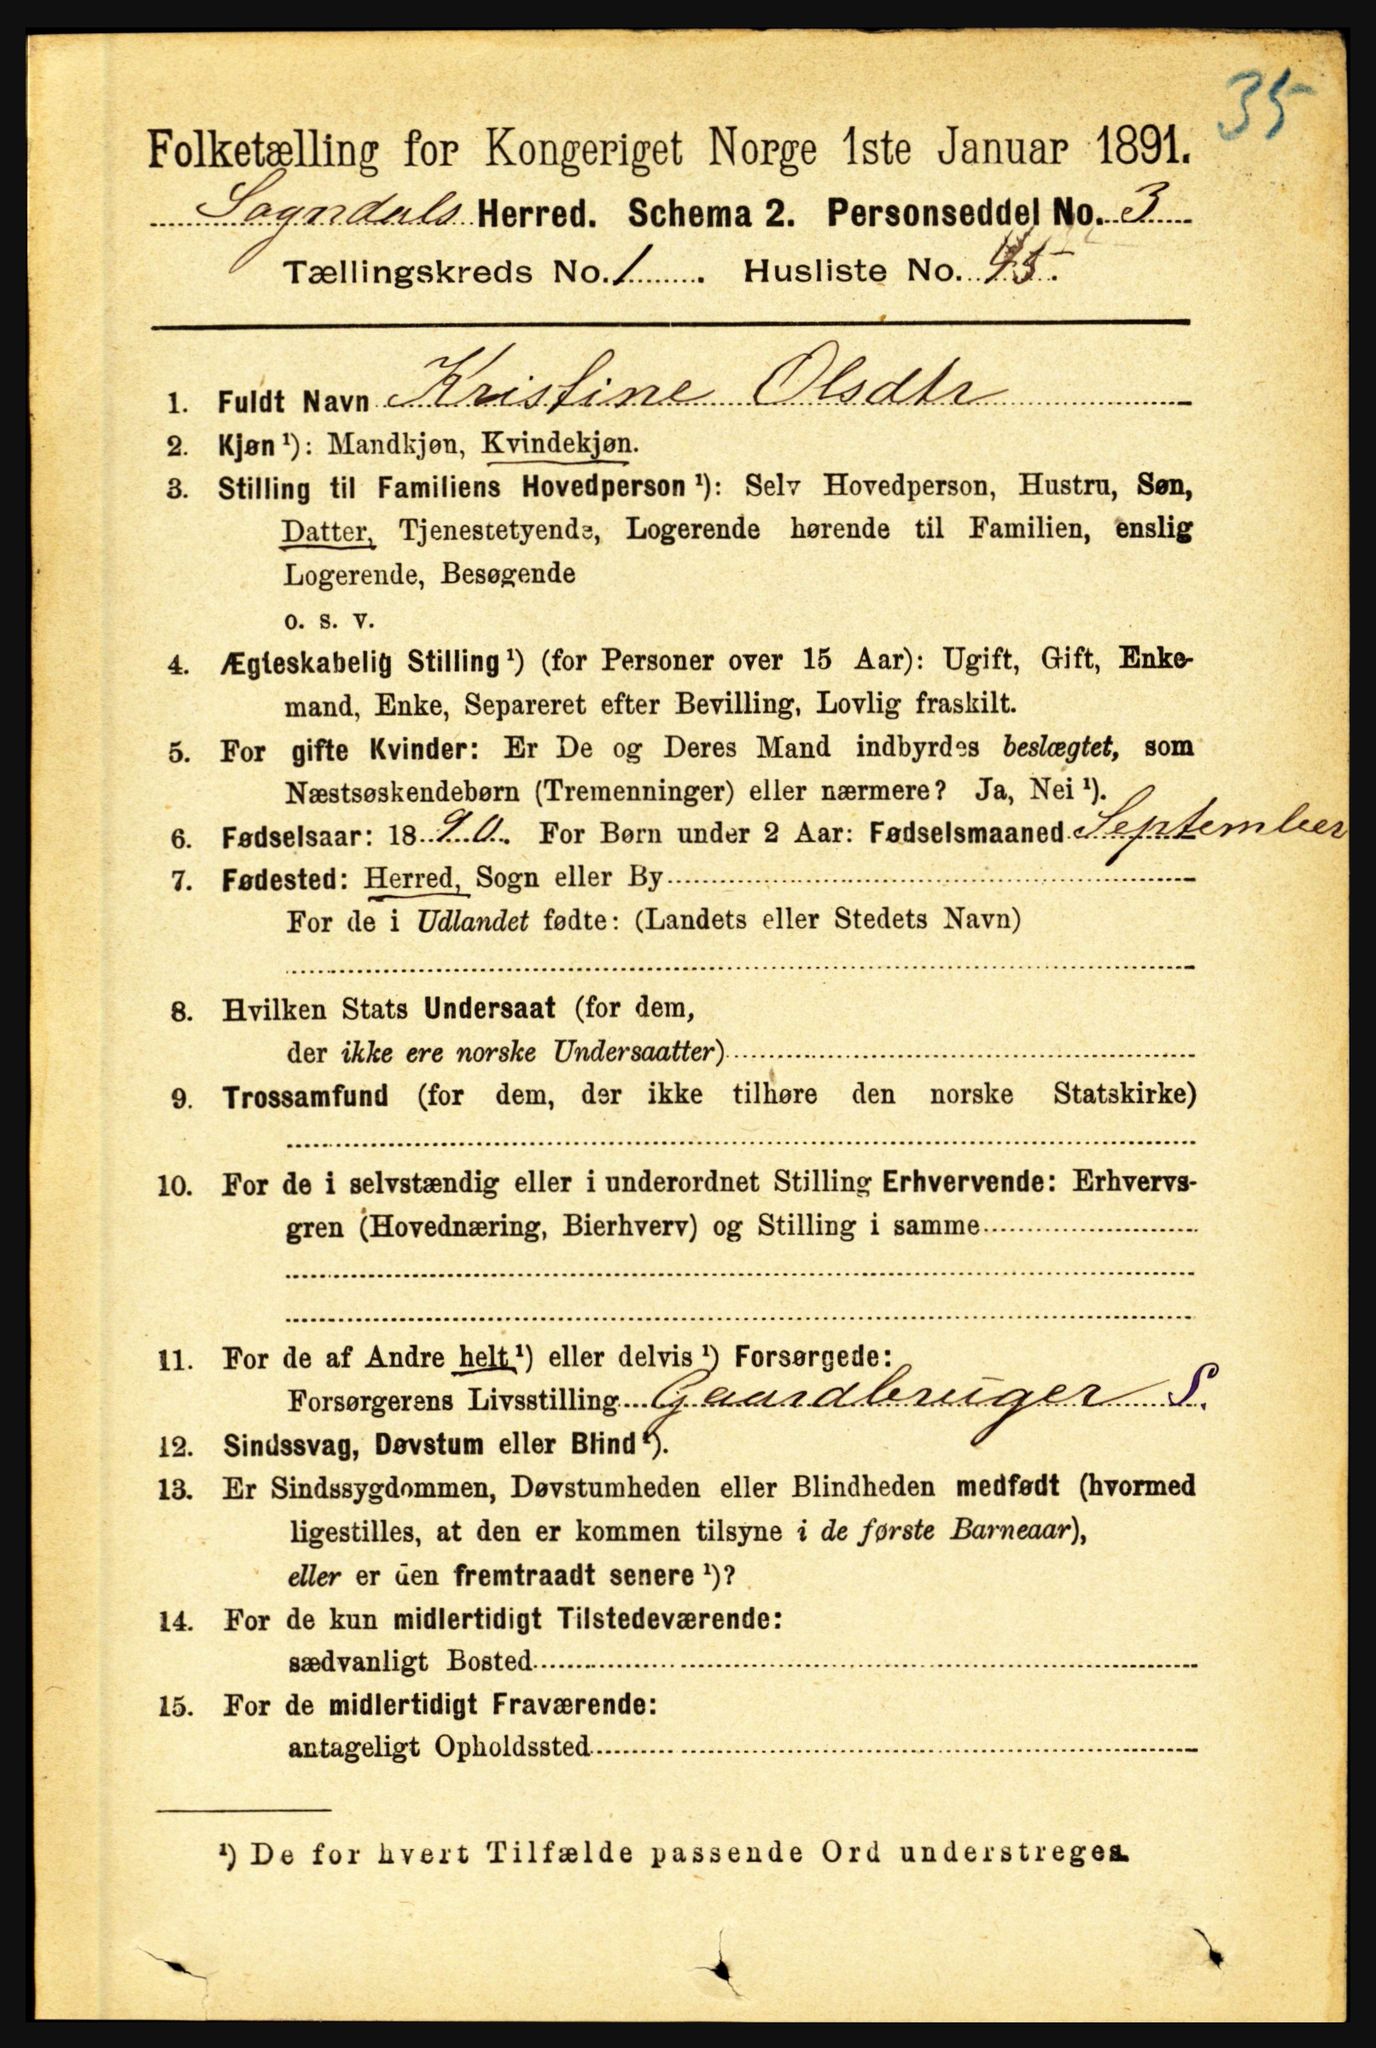 35
Folketælling for Kongeriget Norge 1ste Januar 1891.
Sogndals Herred. Schema 2. Personseddel No. 3
Tællingskreds No. 1 . Husliste No.
1. Fuldt Navn Kristine Olsdtr
2. Kjøn ¹): Mandkjøn, Kvindekjøn.
3. Stilling til Familiens Hovedperson ¹): Selv Hovedperson, Hustru, Søn,
Datter, Tjenestetyende, Logerende hørende til Familien, enslig
Logerende, Besøgende
o. s. v.
4. Ægteskabelig Stilling ¹) (for Personer over 15 Aar): Ugift, Gift, Enke-
mand, Enke, Separeret efter Bevilling, Lovlig fraskilt.
5. For gifte Kvinder: Er De og Deres Mand indbyrdes beslægtet, som
Næstsøskendebørn (Tremenninger) eller nærmere? Ja, Nei ¹).
6. Fødselsaar: 18 90. For Børn under 2 Aar: Fødselsmaaned September
7. Fødested: Herred, Sogn eller By
For de i Udlandet fødte: (Landets eller Stedets Navn)
8. Hvilken Stats Undersaat (for dem,
der ikke ere norske Undersaatter)
9. Trossamfund (for dem, der ikke tilhøre den norske Statskirke)
10. For de i selvstændig eller i underordnet Stilling Erhvervende: Erhvervs-
gren (Hovednæring, Bierhverv) og Stilling i samme
11. For de af Andre helt ¹) eller delvis ¹) Forsørgede:
Forsørgerens Livsstilling Gaardbruger S.
12. Sindssvag, Døvstum eller Blind ¹).
13. Er Sindssygdommen, Døvstumheden eller Blindheden medfødt (hvormed
ligestilles, at den er kommen tilsyne i de første Barneaar),
eller er den fremtraadt senere ¹)?
14. For de kun midlertidigt Tilstedeværende:
sædvanligt Bosted
15. For de midlertidigt Fraværende:
antageligt Opholdssted
¹) De for hvert Tilfælde passende Ord understreges.